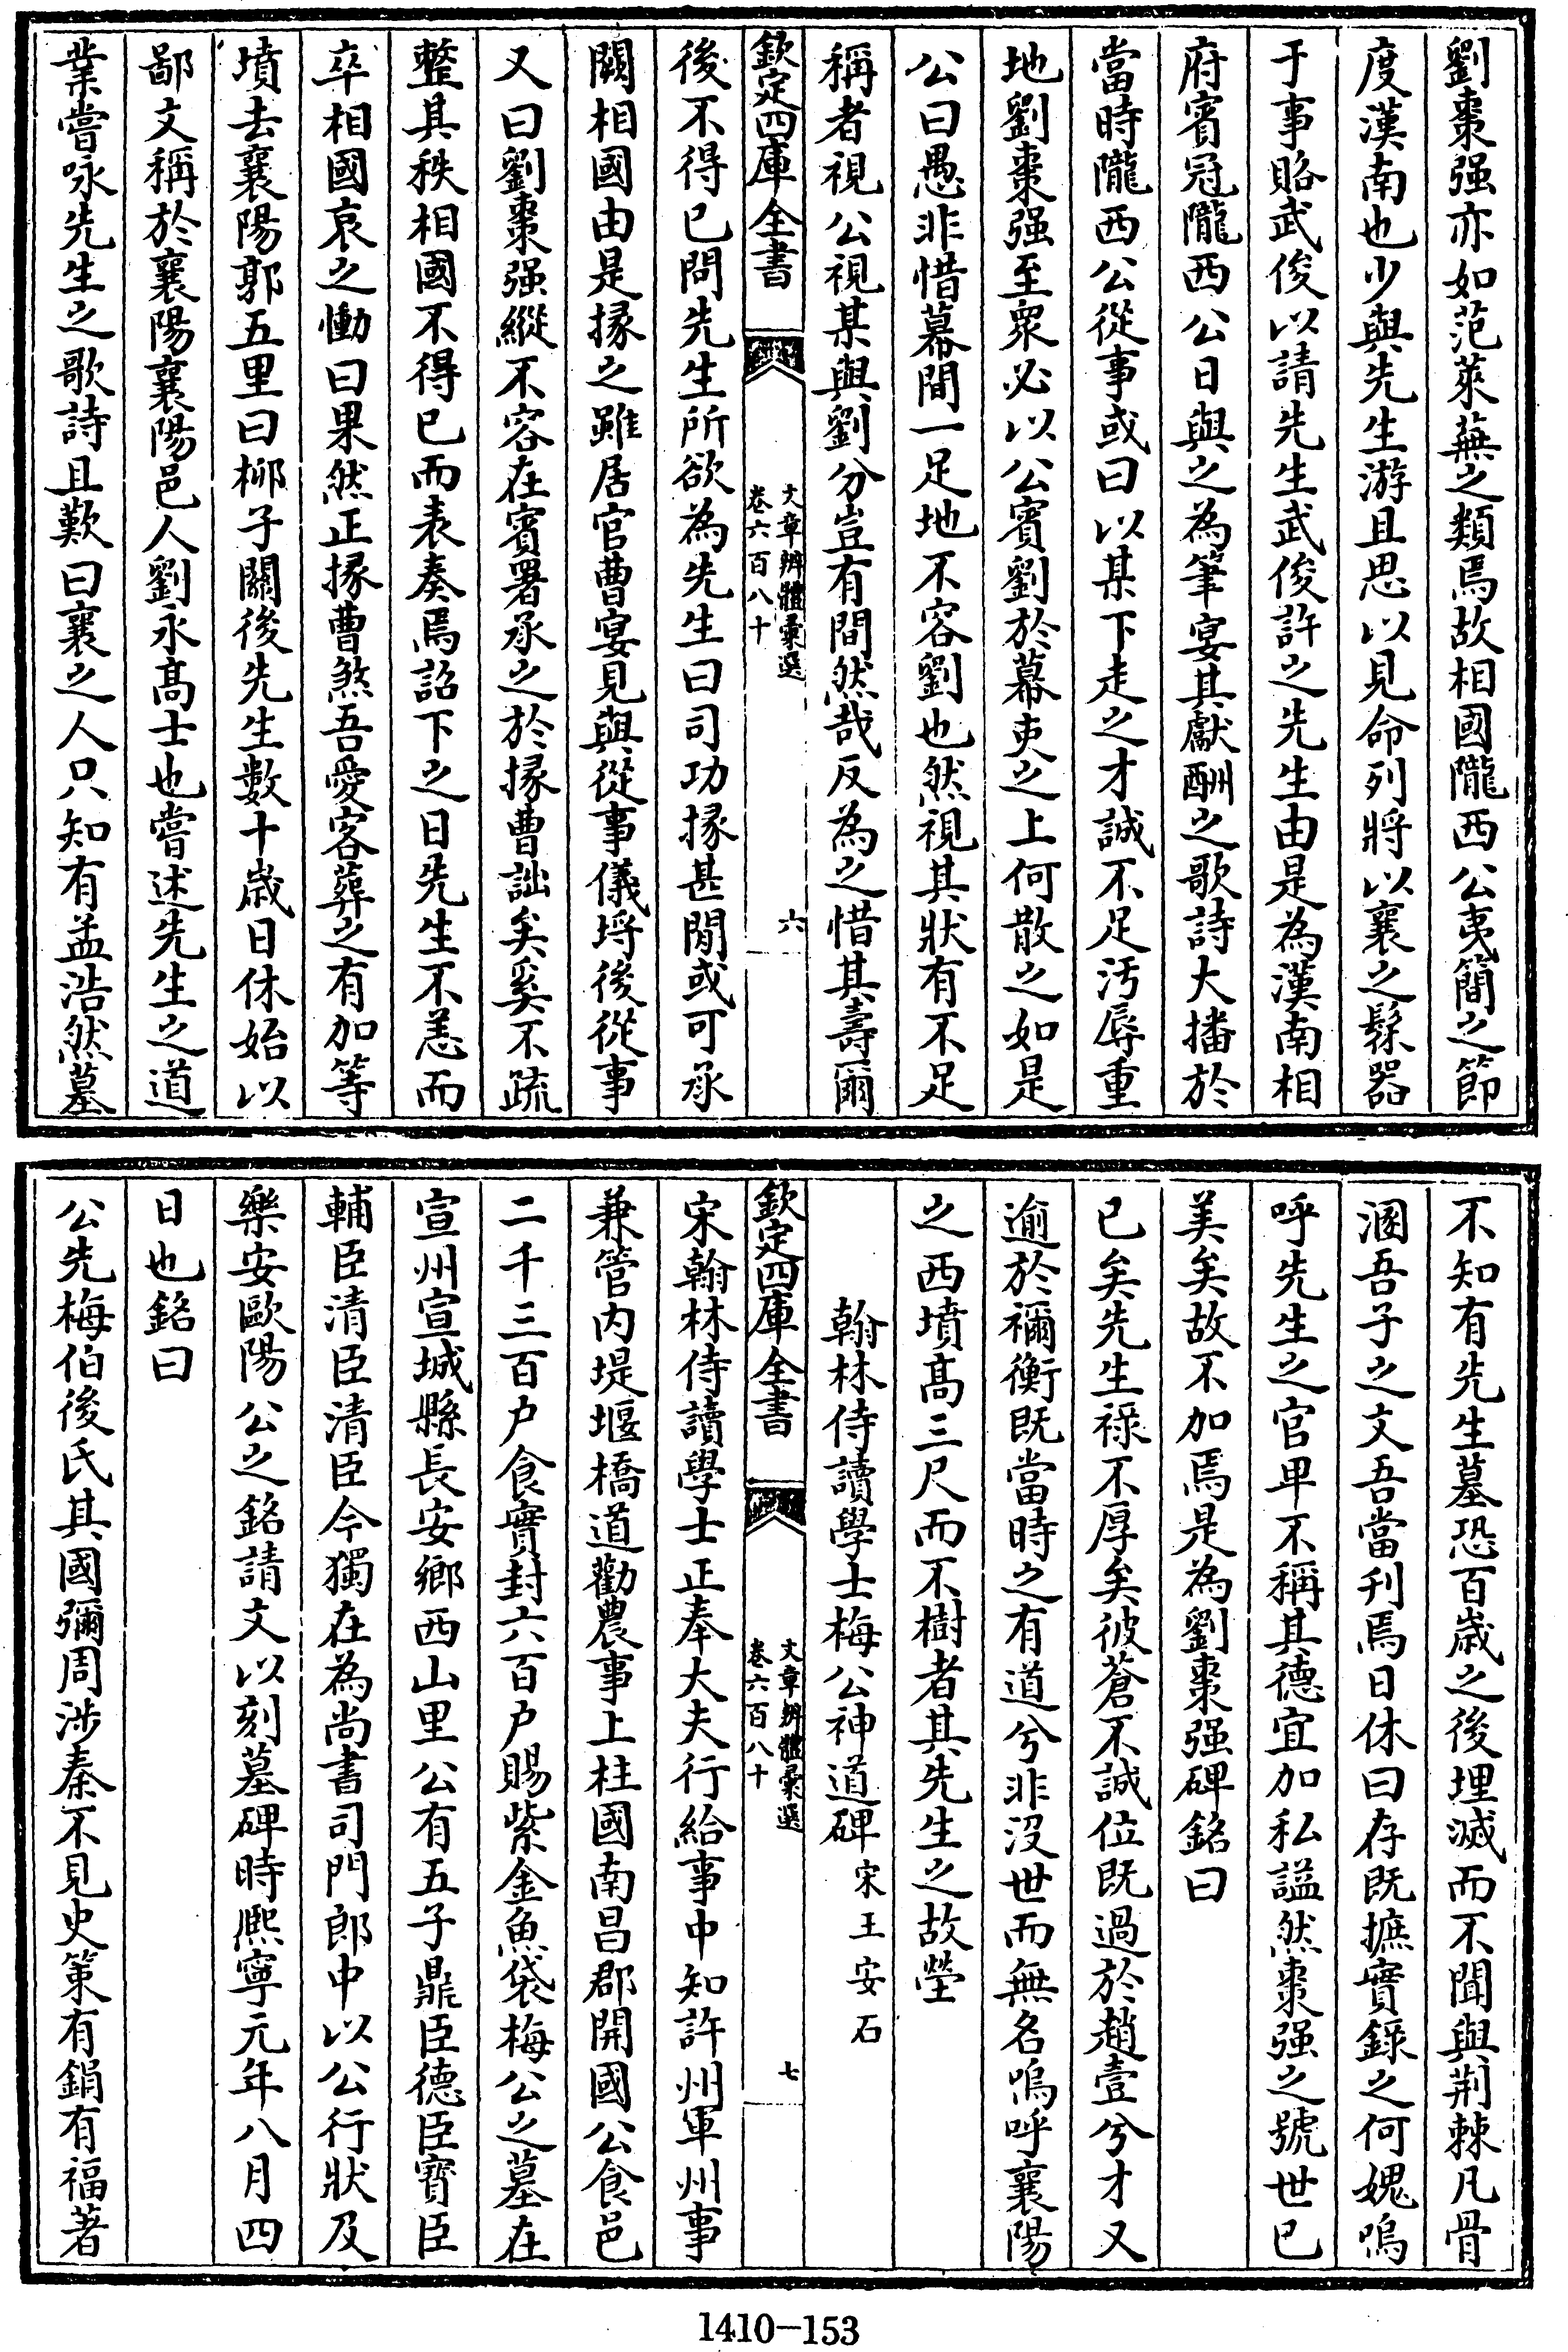 劉棗强亦如范萊蕪之類焉故相國隴西公夷簡之節
度漢南也少與先生游且思以見命列將以襄之髹器
于事賂武俊以請先生武俊許之先生由是為漢南相
府賓冠隴西公日與之為筆宴其獻酬之歌詩大播於
當時隴西公從事或曰以某下走之才誠不足污辱重
地劉棗强至眾必以公賓劉於幕吏之上何散之如是
公曰愚非惜幕間一足地不容劉也然視其狀有不足
稱者視公視某與劉分豈有間然哉反為之惜其壽爾
欽定四庫全書
文章辨體彙選
卷六百八十
六
後不得已問先生所欲為先生曰司功掾甚閒或可承
闕相國由是掾之雖居官曹宴見與從事儀埒後從事
又曰劉棗强縱不容在賓署承之於掾曹詘矣奚不疏
整其秩相國不得已而表奏焉詔下之日先生不恙而
卒相國哀之慟曰果然正掾曹煞吾愛客葬之有加等
墳去襄陽郭五里曰栁子關後先生數十歲日休始以
鄙文稱於襄陽襄陽邑人劉永高士也嘗述先生之道
業嘗咏先生之歌詩且歎曰襄之人只知有孟浩然墓
不知有先生墓恐百歲之後埋滅而不聞與荆棘凡骨
溷吾子之文吾當刊焉日休曰存既摭實錄之何媿嗚
呼先生之官卑不稱其德宜加私諡然棗强之號世已
美矣故不加焉是為劉棗强碑銘曰
已矣先生祿不厚矣彼蒼不誠位既過於趙壹兮才又
逾於禰衡既當時之有道兮非沒世而無名嗚呼襄陽
之西墳高三尺而不樹者其先生之故塋
翰林侍讀學士梅公神道碑 宋王安石
欽定四庫全書
文章辨體彙選
卷六百八十
七
宋翰林侍讀學士正奉大夫行給事中知許州軍州事
兼管内堤堰橋道勸農事上柱國南昌郡開國公食邑
二千三百户食實封六百户賜紫金魚袋梅公之墓在
宣州宣城縣長安鄉西山里公有五子鼎臣德臣寶臣
輔臣清臣清臣今獨在為尚書司門郎中以公行狀及
樂安歐陽公之銘請文以刻墓碑時熈寧元年八月四
日也銘曰
公先梅伯後氏其國彌周涉秦不見史策有鋗有福著
1410—153